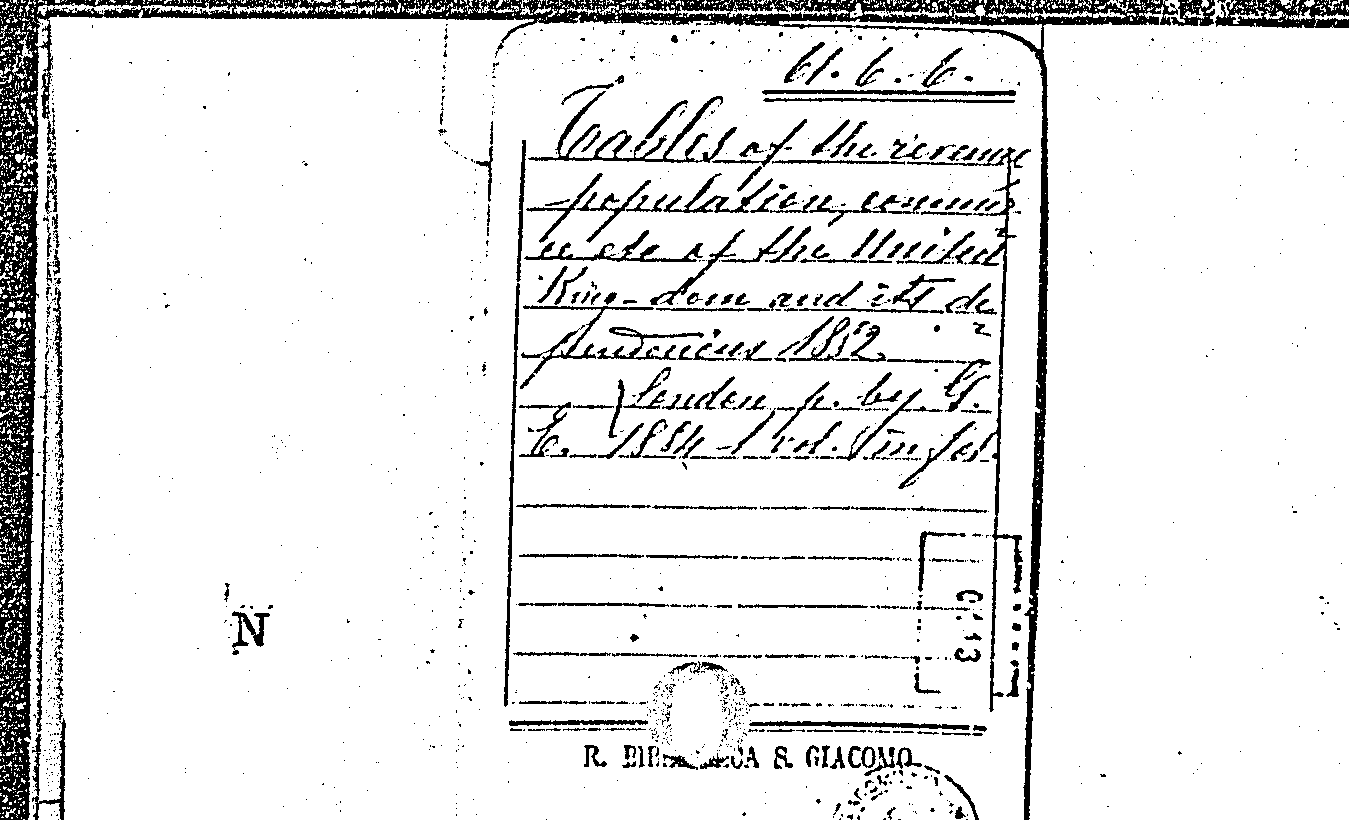 61. 6. 6.
Tables of the revenue
population, commer
ce etc of the United
King-dom and its de
pendencies 1852.
London p. by G.
E. 1854 1 vol. in fol.
N
R. S. GIACOMO